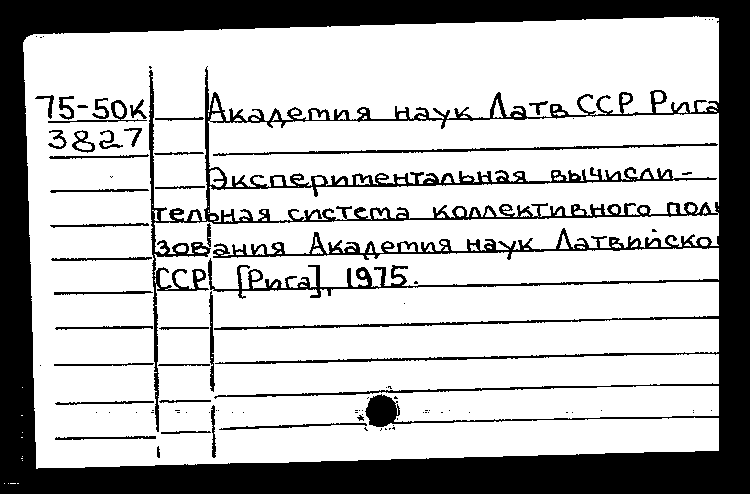 75-50к Академия наук Латв ССР Рига
3827
Экспериментальная вычисли-
тельная система коллективного поль
зования Академия наук Латвийско
ССР [Рига], 1975.